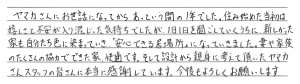 ヤマカさんにお世話になってから、あっという間の1年でした。住み始めた当初は
嬉しさと不安が入り混じった気持ちでしたが、1日1日を過ごしていくうちに、新しかった
家も自分たち色に染まっていき、"安心できる居場所"になっていきました。妻や家族
のたくさんの協力でできた家、快適です。そして設計から親身に考えて頂いたヤマカ
さんスタッフの皆さんに本当に感謝しています。今後ともよろしくお願いします